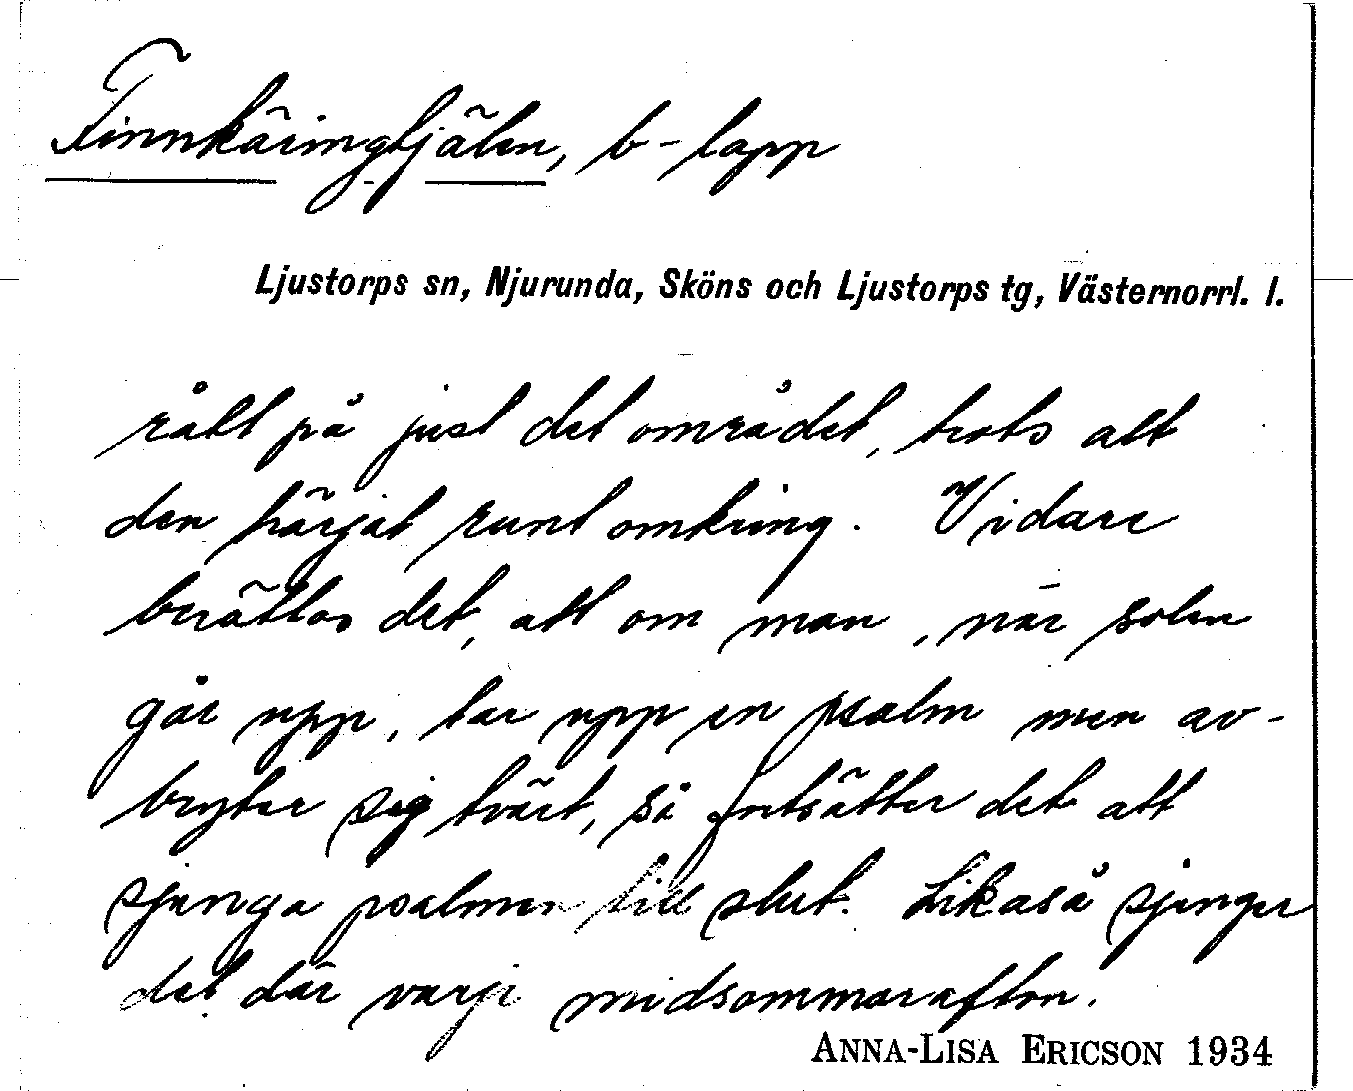 Finnkäringtjälen, b-lapp
Ljustorps sn, Njurunda, Sköns och Ljustorps tg, Västernorrl. l.
rått på just det området, trots att
den härjat runt omkring. Vidare
berättas det, att om man, när solen
går upp, tar upp en psalm men av-
bryter sig tvärt, så fortsätter det att
sjunga psalmen till slut. Likaså sjunger
det där varje midsommarafton.
ANNA-LISA ERICSON 1934